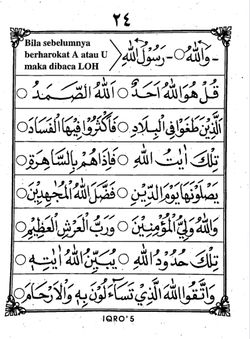 ٢٤
Bila sebelumnya
berharokat A atau U
maka dibaca LOH
-وَاللّٰهُ ○- رَسُوْلُ اللّٰهِ
قُلْ هُوَ اللّٰهُ اَحَدٌ ○ اَللّٰهُ الصَّمَدُ
الَّذِيْنَ طَغَوْا فِى الْبِلَادِ ○ فَاَكْثَرُوْا فِيْهَا الْفَسَادَ
تِلْكَ اٰيٰتُ اللّٰهِ ○ فَاِذَا هُمْ بِالسَّاهِرَةِ
يَصْلَوْنَهَا يَوْمَ الدِّيْنِ ○ فَضَّلَ اللّٰهُ الْمُجٰهِدِيْنَ
وَاللّٰهُ وَلِيُّ الْمُؤْمِنِيْنَ ○ وَرَبُّ الْعَرْشِ الْعَظِيْمِ
تِلْكَ حُدُوْدُ اللّٰهِ ○ يُبَيِّنُ اللّٰهُ اٰيٰتِهٖ
وَاتَّقُوا اللّٰهَ الَّذِيْ تَسَآءَلُوْنَ بِهٖ وَالْاَرْحَامَ
IQRO' 5